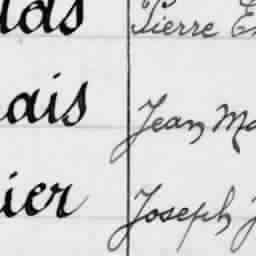 das Pierre E
ais Jean Ma
ier Joseph J